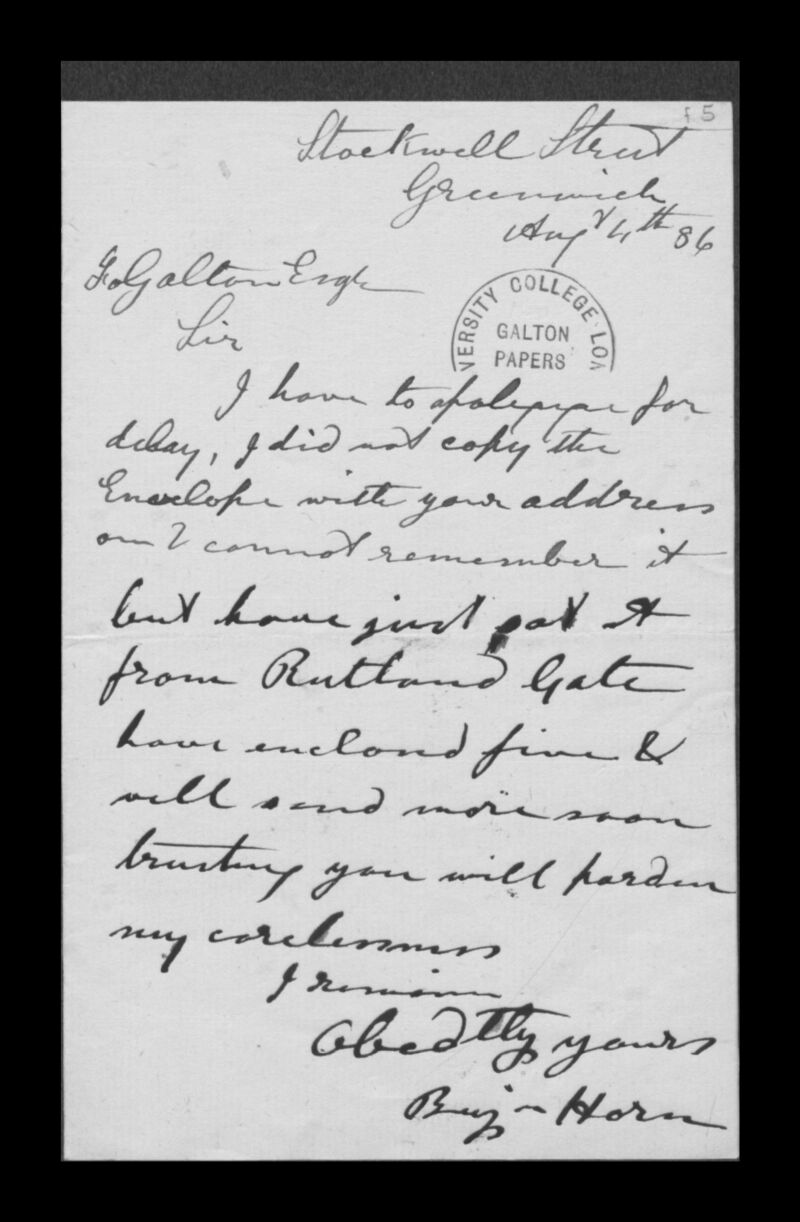 f5
Stockwell Street
Greenwich
Augt 4th 86
F. Galton Esqr
Sir
UNIVERSITY COLLEGE LON
GALTON
PAPERS
I have to apologise for
delay, I did not copy the
Envelope with your address
& cannot remember it
but have just got it
from Rutland Gate
have enclosed five &
will send more soon
trusting you will pardon
my carelessness
I remain
Obedtly yours
Benjn Horn